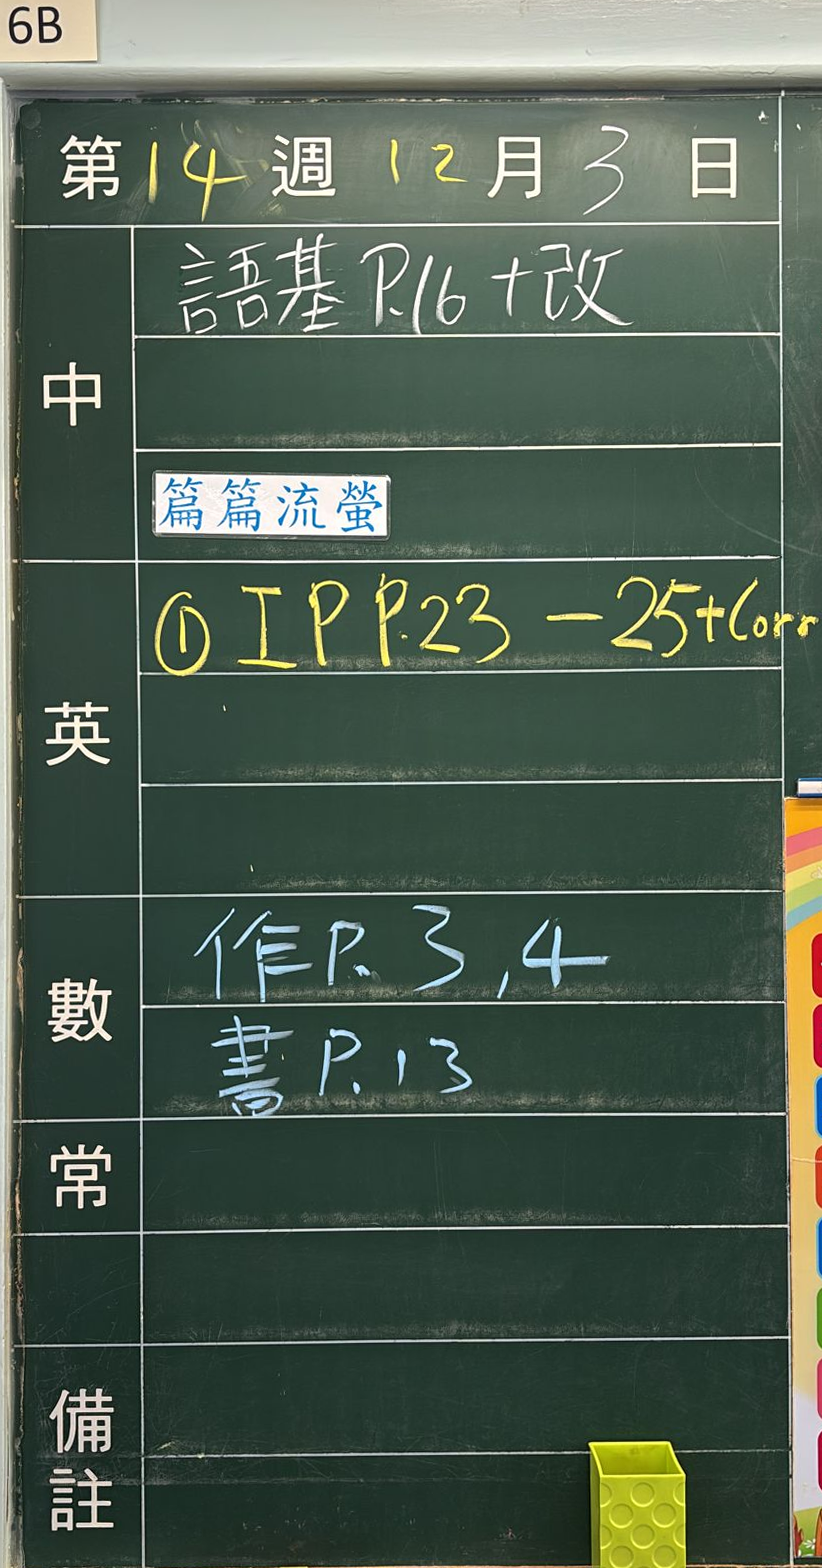 6B
第14週 12月3日
中
語基 P.16 + 改
篇篇流螢
英
① IP P.23 - 25 + Corr
數
作 P. 3, 4
書 P. 13
常
備註